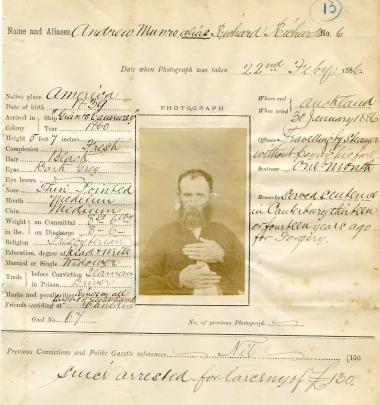 13
Name and Aliases Andrew Munro alias Richard Richards No. 6
Date when Photograph was taken 22nd Feby 1886
Native place America
Date of birth 1839
Arrived in Ship "Giant's Causeway"
Colony Year 1860
Height 5 feet 7 inches
Complexion Fresh
Hair Black
Eyes Dark Grey
Eye brows
Nose Thin Pointed
Mouth Medium
Chin Medium
Weight on Committal
in lbs. on Discharge
Religion Presbyterian
Education, degree of Read & Write
Married or Single Widower
Trade before Conviction Seaman
in Prison Driver
Marks and peculiarities
Friends residing at
Gaol No. 67
PHOTOGRAPH
No. of previous Photograph
Where and Auckland
When tried 30 January 1886
Offence Travelling by Steamer
without paying his fare
Sentence One Month
Remarks Served sentence
in Canterbury thirteen
or fourteen years ago
for Forgery.
Previous Convictions and Police Gazette references, Nil [150
since arrested for larceny of £130.